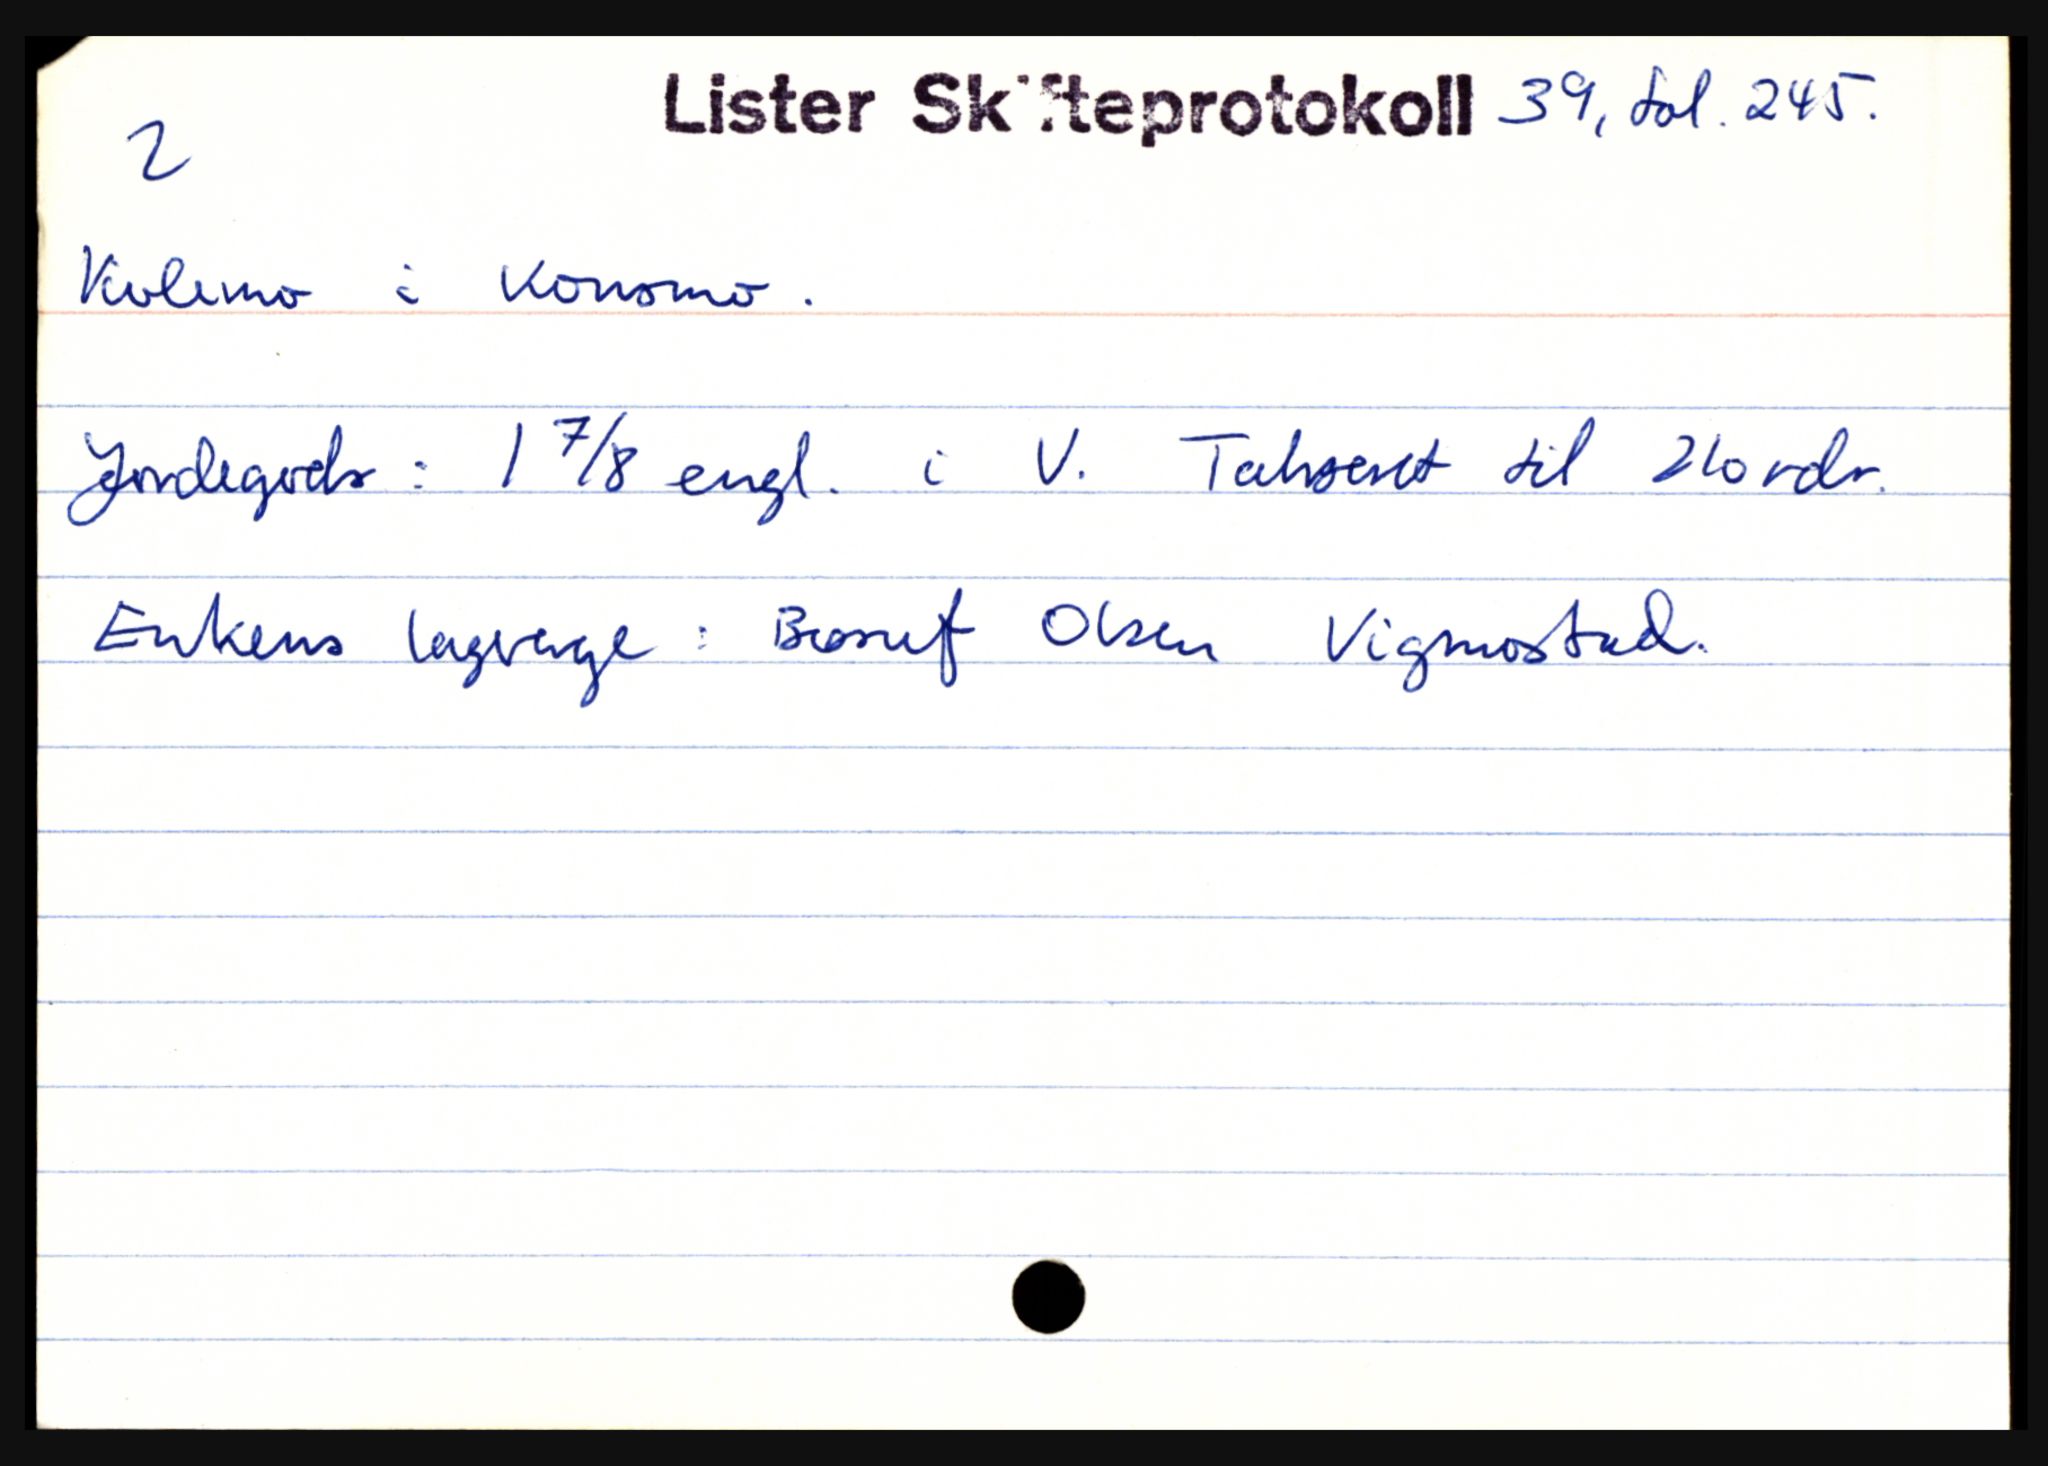 Lister Skifteprotokoll 39, fol. 245.
2
Kvlemo i Konsmo.
Jordegods: 1 7/8 engl. i V. til 240 rdr.
Enkens lagverge: Olsen Vigmostad.